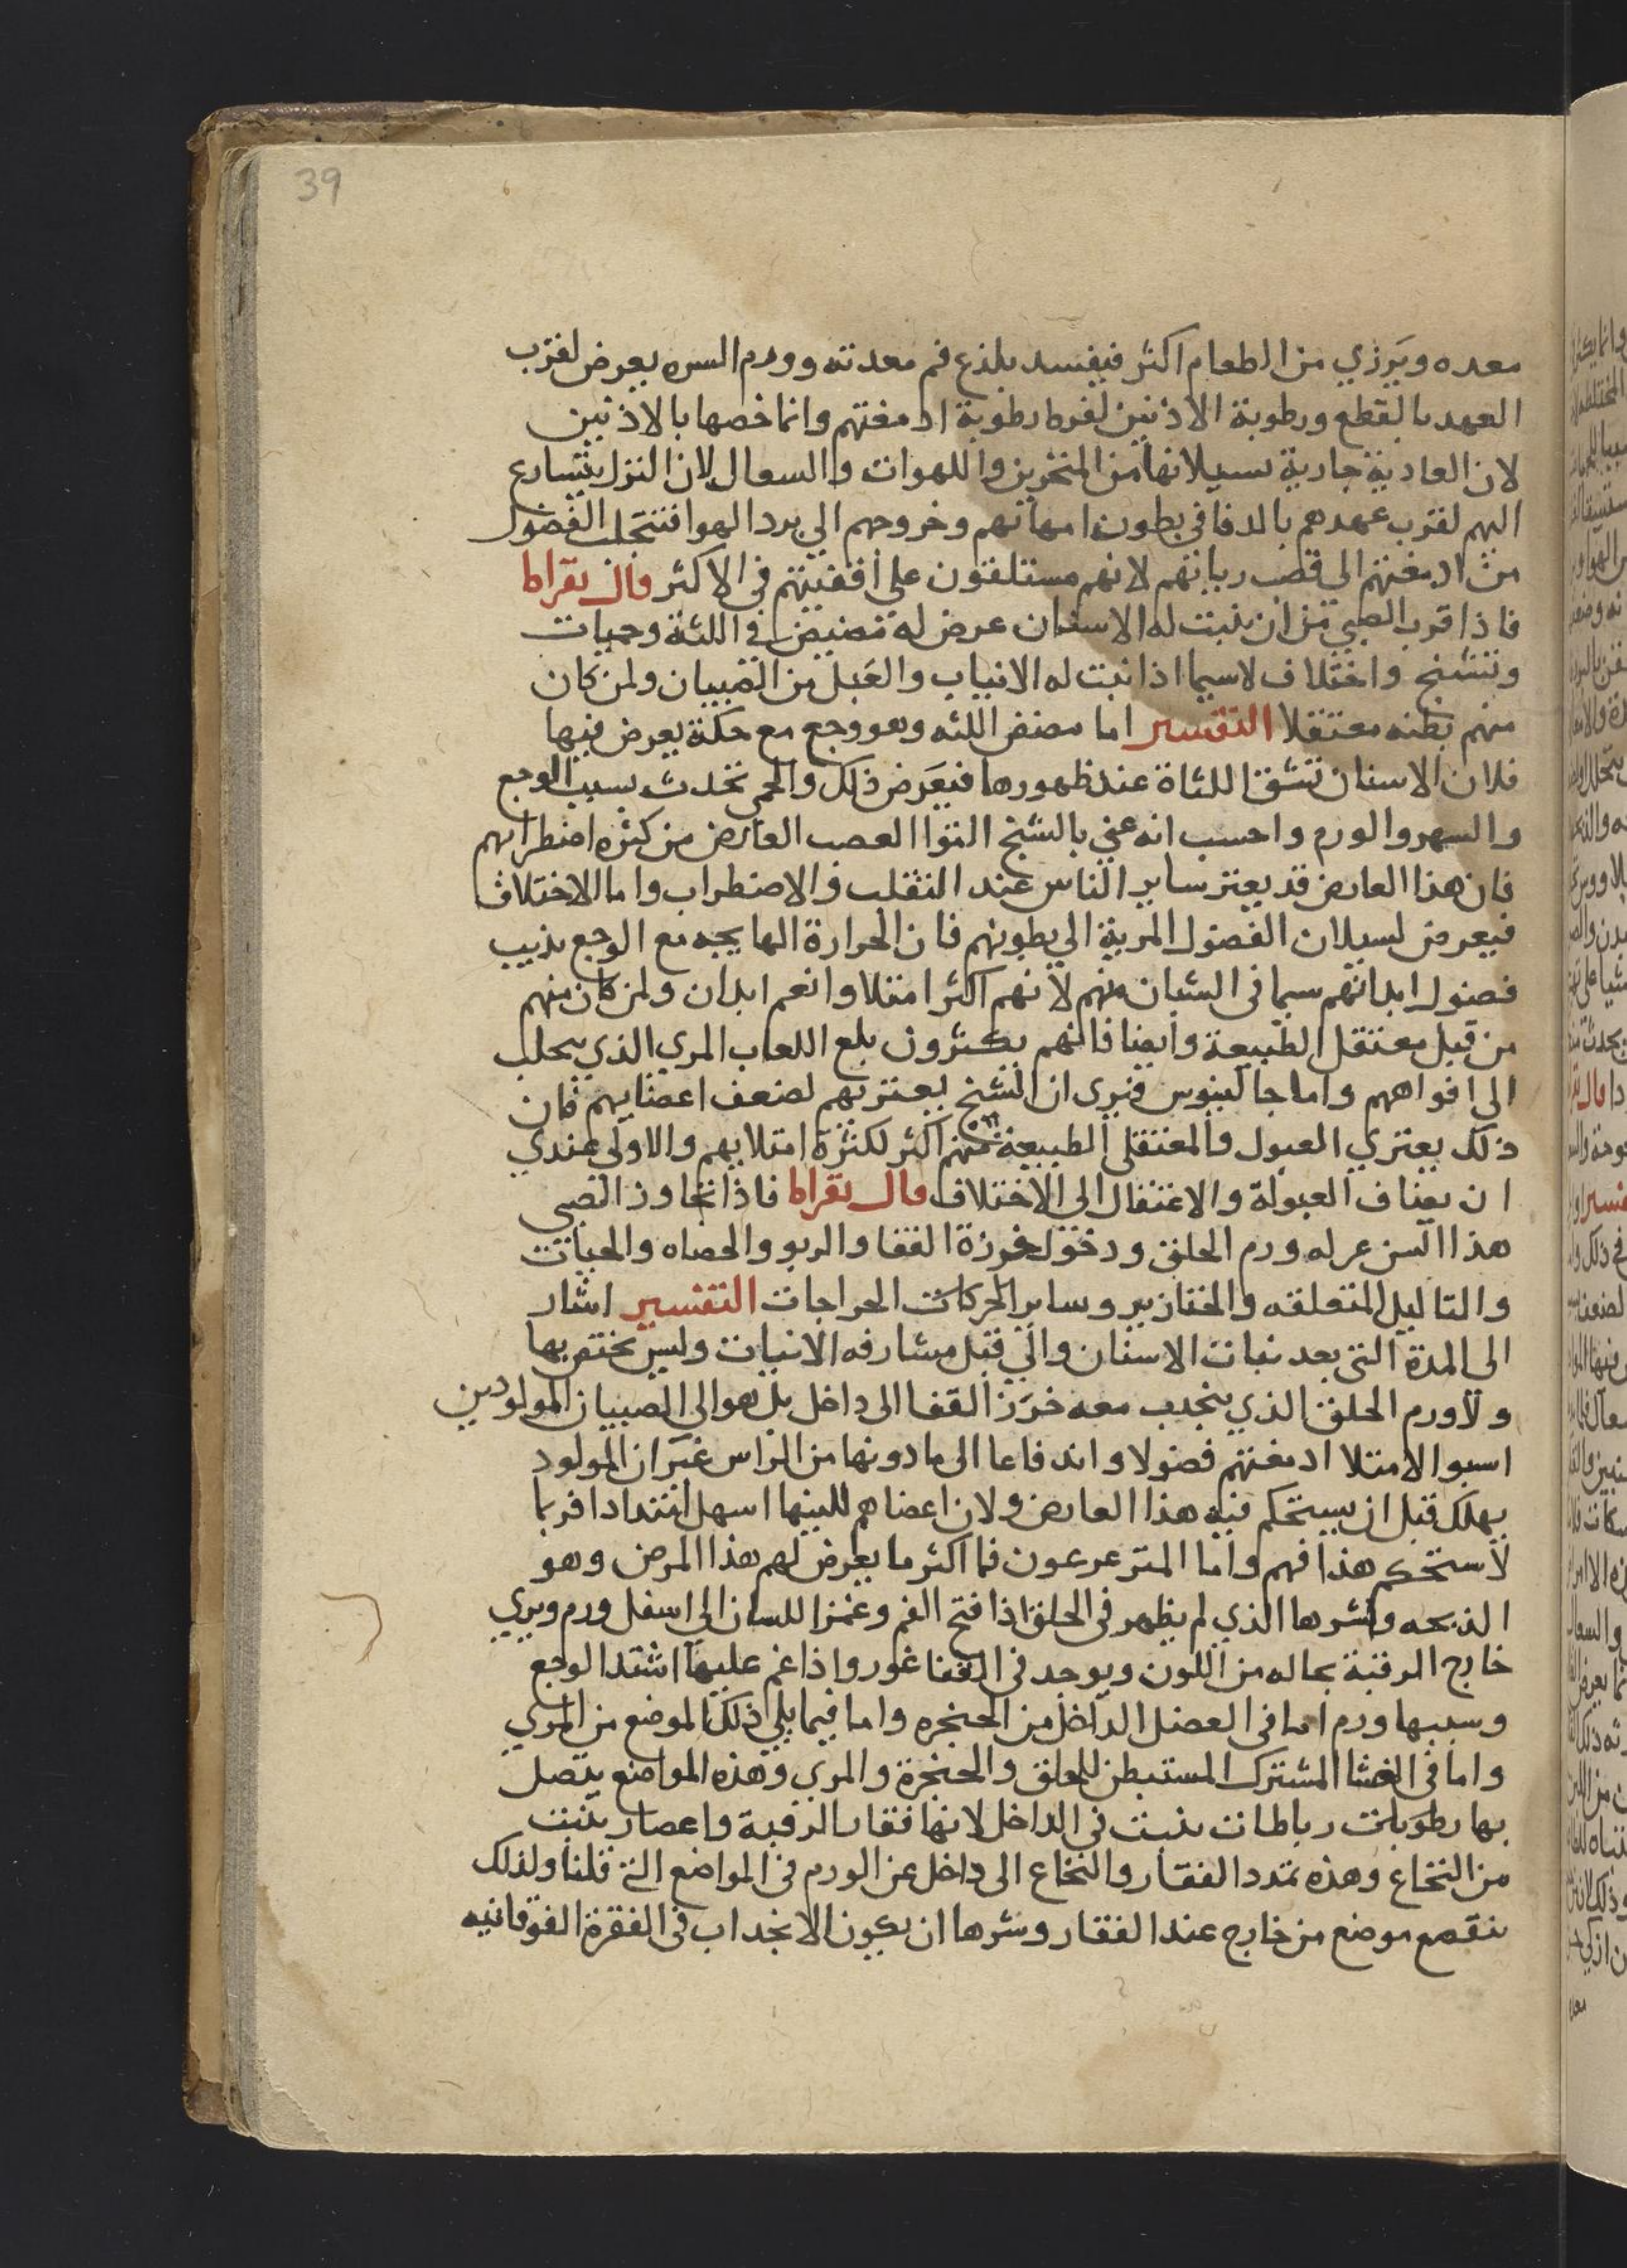 39
معده ويَرزي من الطعام اكثر فيفسد يلذع فم معدته وورم السره يعرض لقرب
العهد بالقطع ورطوبة الاذنين لفرط رطوبة ادمغتهم وانما خصها بالاذنين
لان العادية جارية بسيلانها من المنخرين واللهوات والسعال لان النزل يتسارع
اليهم لقرب عهدهم بالدفا في بطون امهاتهم وخروجهم الي برد الهوا فتتحلب الفضول
من ادمغتهم الى قصب رياتهم لانهم مستلقون على اقفيتهم في الاكثر قال بقراط
فاذا قرب الصبي من ان ينبت له الاسنان عرض له مضيض في اللثة وحميات
وتشنج واختلاف لاسيما اذا نبت له الانياب والعَبل من الصبيان ولمن كان
منهم بطنه معتقلا التفسير اما مضض اللثه وهو وجع مع حكة يعرض فيها
فلان الاسنان تشق اللثاة عند ظهورها فيعَرض ذلك والحمى تحدث بسبب الوجع
والسهر والورم واحسب انه عني بالتشنج التوا العصب العارض من كثره اضطرابهم
فان هذا العارض قد يعتر ساير الناس عند التقلب والاضطراب واما الاختلاف
فيعرض لسيلان الفضول المرية الي بطونهم فان الحرارة الهايجه مع الوجع يذيب
فضول ابدانهم سيما في الشبان منهم لانهم اكثر امتلا وانعم ابدان ولمن كان منهم
من قبل معتقل الطبيعة وايضا فانهم يكثرون بلع اللعاب المري الذي يتحلب
الي افواههم واما جالينوس فيرى ان التشنج يعتريهم لضعف اعضايهم فان
ذلك يعتري العبول والمعتقلى الطبيعة منهم اكثر لكثرة امتلايهم والاولى عندي
ان يضاف العبولة والاعتقال الى الاختلاف قال بقراط فاذا تجاوز الصبي
هذا السن عر له ورم الحلق ودخول خرزة القفا والربو والحصاه والحيات
والثاليل المتعلقه والخنازير وساير الحركات الخراجات التفسير اشار
الى المدة التي بعد نبات الاسنان والي قبل مشارفه الانبات وليس يختص بها
ولا ورم الحلق الذي ينجدب معه خرَز القفا الى داخل بل هو الى الصبيان المولودين
اسبو الامتلا ادمغتهم فضولا واندفاعا الى ما دونها من الراس غيَر ان المولود
يهلك قبل ان يستحكم فيه هذا العارض ولان اعضاهم للينها اسهل امتدادا فربما
لا ستحكم هذا فهم واما المترعرعون فما اكثر ما يعرض لهم هذا المرض وهو
الذبحه وشرها الذي لم يظهر في الحلق اذا فتح الفم وغمز اللسان الى اسفل ورم ويري
خارج الرقبة بحاله من اللون ويوجد في القفا غور واذا غم عليها اشتد الوجع
وسببها ورم اما في العضل الداخل من الحنجره واما فيما يلي ذلك الموضع من المري
واما في الغشا المشترك المستبطن للحلق والحنجرة والمري وهذه المواضع يتصل
بها رطوبات رباطات ينبت في الداخل لانها فقار الرقبة واعصار ينبت
من النخاع وهذه تمدد الفقار والنخاع الى داخل عن الورم في المواضع التي قلنا ولذلك
ينقصع موضع من خارج عند الفقار وشرها ان يكون الانجداب في الفقرة الفوقانيه